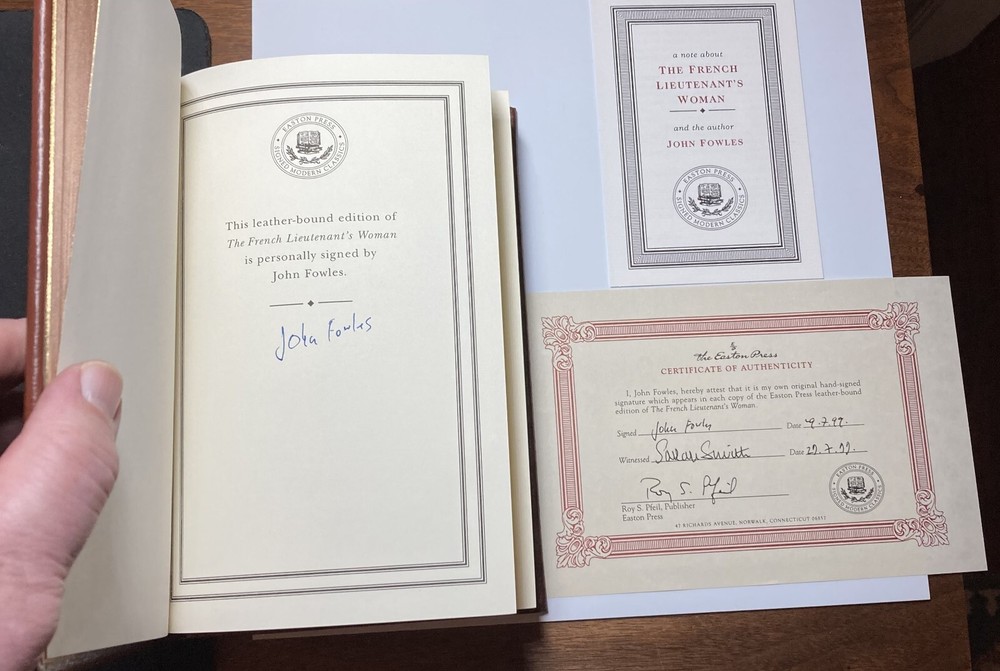 EASTON PRESS
SIGNED MODERN CLASSICS
This leather-bound edition of
The French Lieutenant's Woman
is personally signed by
John Fowles.
John Fowles
a note about
THE FRENCH
LIEUTENANT'S
WOMAN
and the author
JOHN FOWLES
EASTON PRESS
SIGNED MODERN CLASSICS
The Easton Press
CERTIFICATE OF AUTHENTICITY
I, John Fowles, hereby attest that it is my own original hand-signed
signature which appears in each copy of the Easton Press leather-bound
edition of The French Lieutenant's Woman.
Signed John Fowles Date 9.7.99.
Witnessed Sarah Smith Date 22.7.99.
Roy S. Pfeil
Roy S. Pfeil, Publisher
Easton Press
EASTON PRESS
SIGNED MODERN CLASSICS
47 RICHARDS AVENUE, NORWALK, CONNECTICUT 06857